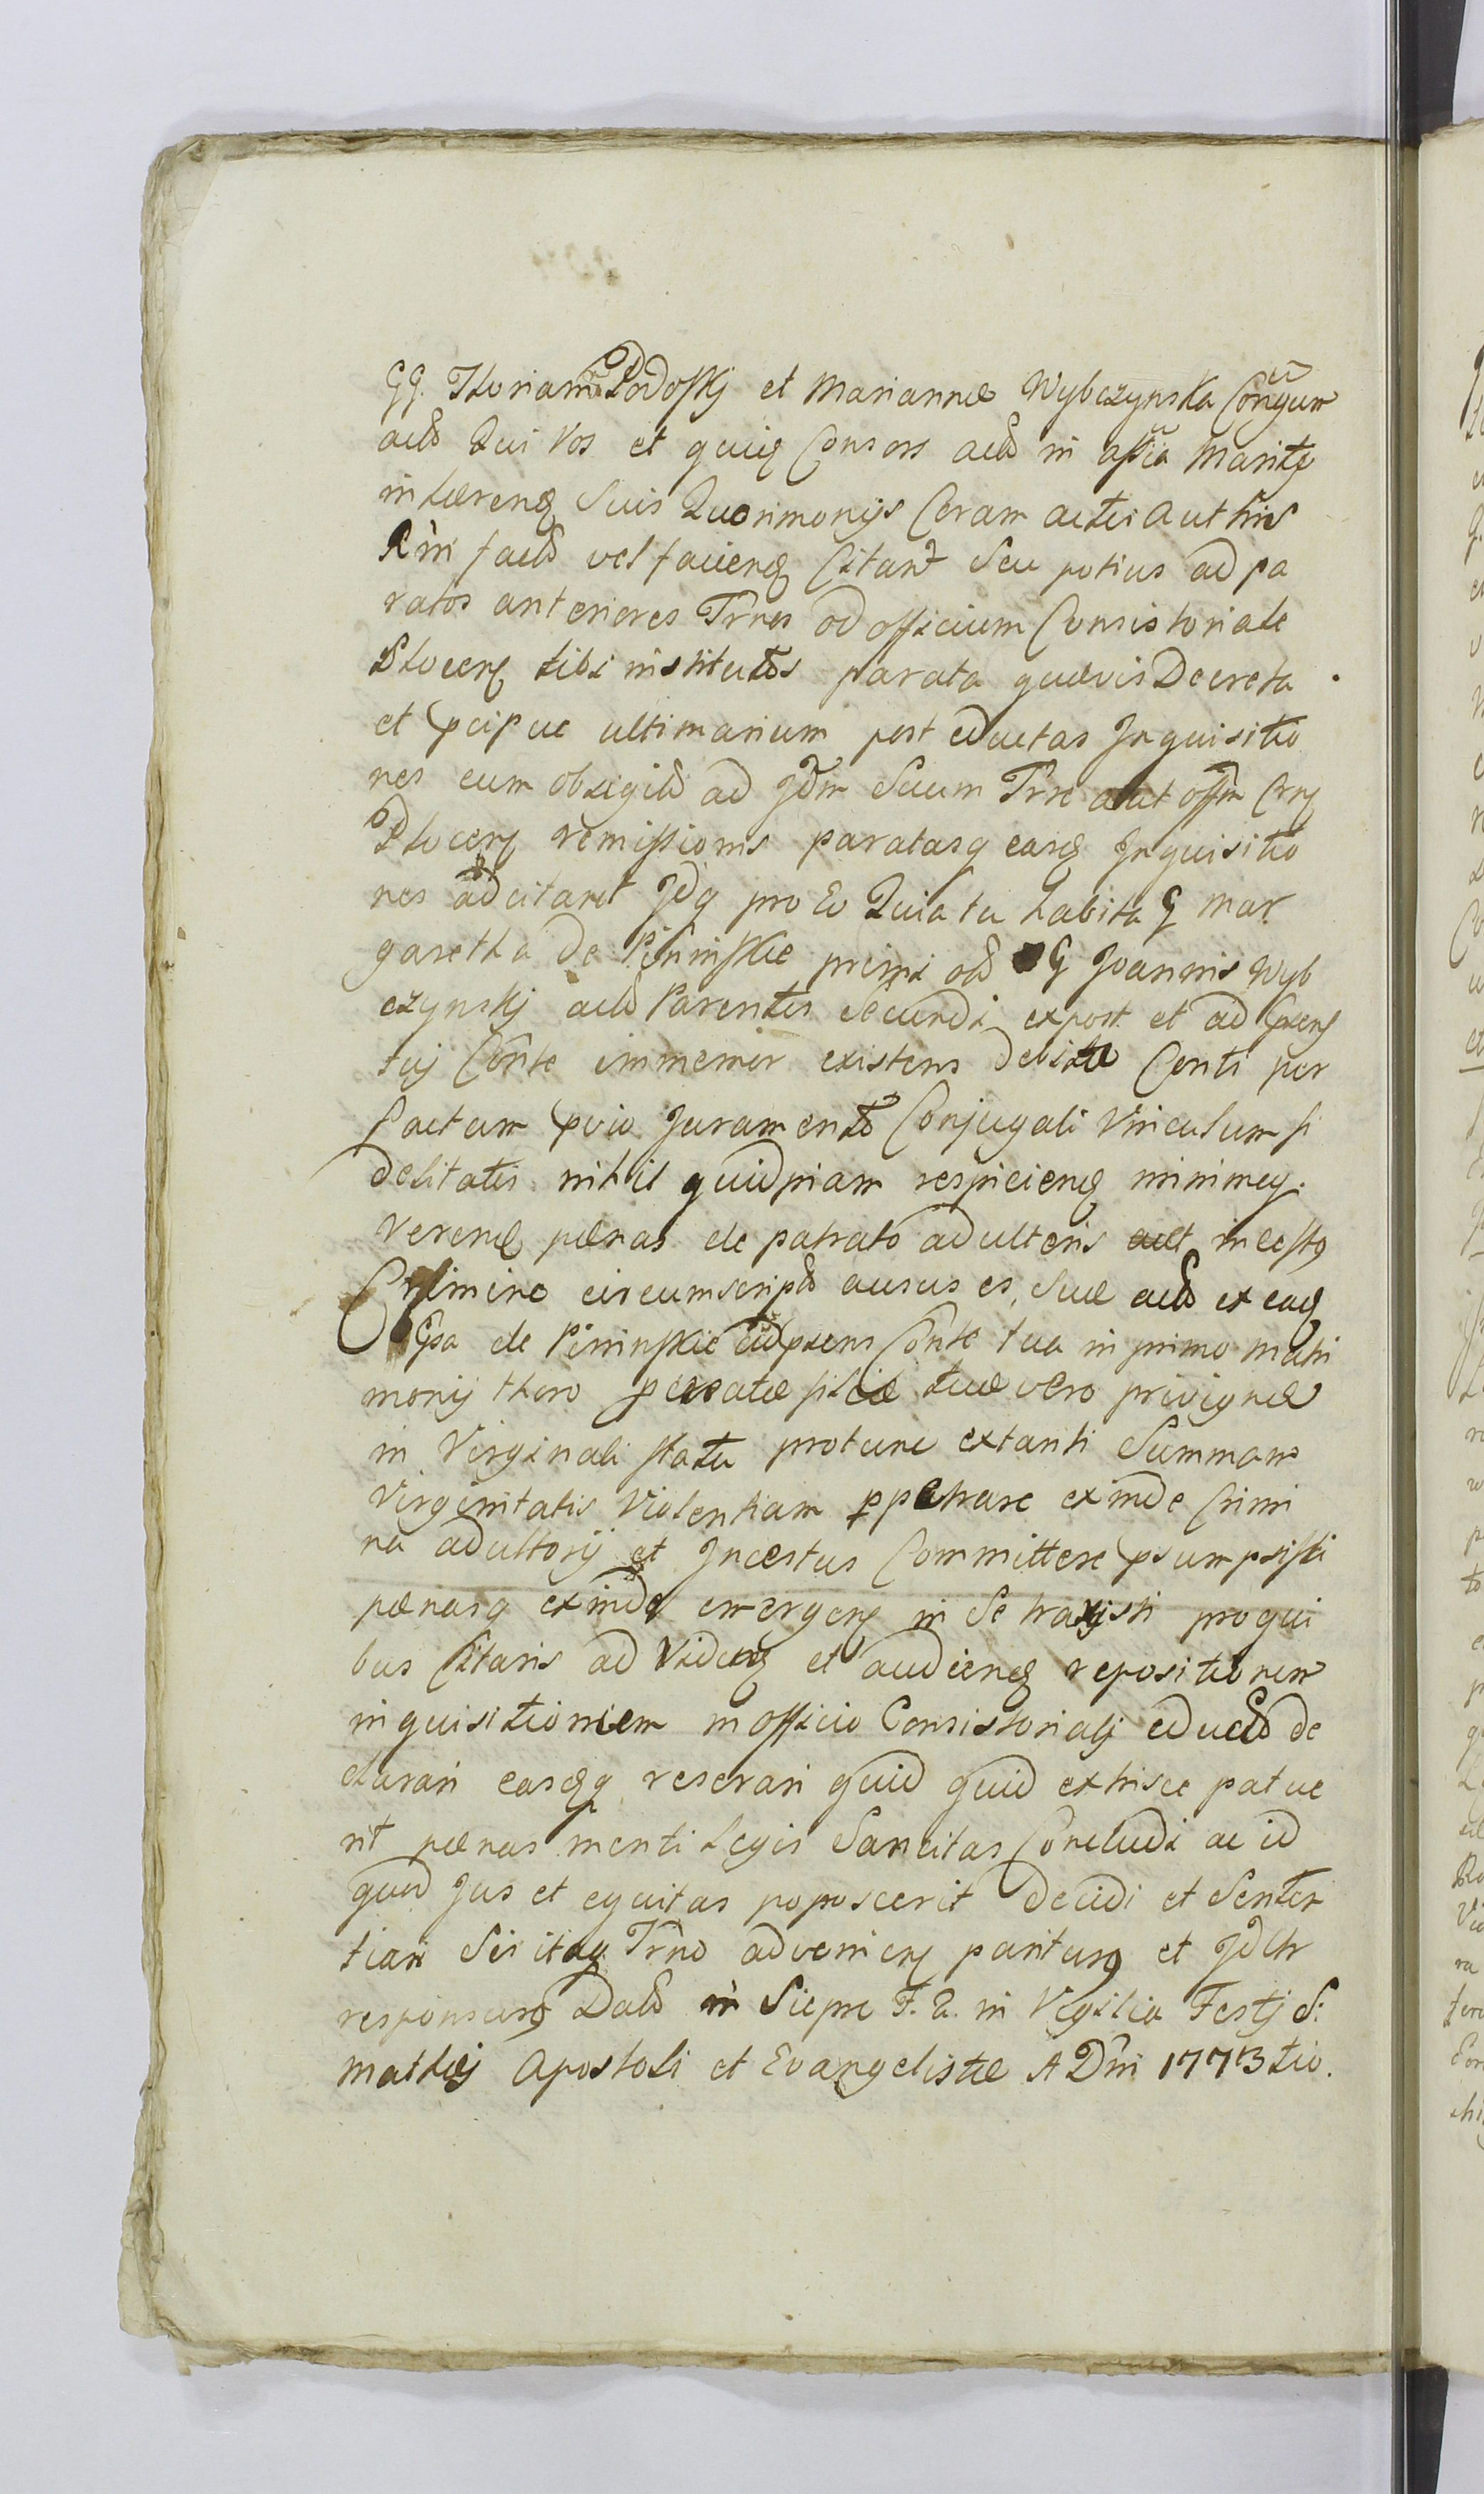 GG. Floriani Podoskj et Mariannæ Wybczynska Conjgum
actt Qui Vos et quivis Consors actt in assta Mariti
inhæren suis Querimonijs Coram actis Authtis
Rm fact vel facien Citant Seu potius ad pa
ratos anteriores Trnos ad officium Consistoriale
Plocen tibi institutos parata quævis Decreta
et pcipue ultimarium post eductas Inquisitio
nes cum obsigill ad Jdm Suum Trre aut offm Cons
Plocen remissionis paratasq easd Inquisitio
nes adcitant Jdq pro Eo Quia tu habita G Mar
garetha de Pininskie primi olim G Joannis Wyb
czynskj actt Parentis Secundi expost et ad psens
tuj Conte immemor existens debitæ Conti per
Pactum pvio Juramento Conjugali Vinculum fi
delitatis nihil quidpiam respicien minimeq
veren pænas de patrato adulteris aut incesto
Crimine circumscript ausus es, suæ actt ex ead
Gsa de Pininskie ad psens Conte tua in primo matri
monij thoro procreatæ filiæ tuæ vero privignæ
in Virginali statu protunc extanti Summam
Virginitatis Violentiam ppetrare exinde Crimi
na adulterij et Incestus Committere psumpsisti
pænasq exinde emergen in Se traxisti pro qui
bus Citaris ad Viden et audien repositionem
inquisitionem in officio Consistorialj educt de
clarari easdq reserari quid quid exhisce patue
rit pænas menti Legis Sancitas Concludi ac id
quod Jus et equitas poposcerit decidi et Senten
tiari Sis itaq Trno advenien paritur et Jdltr
responsur Datt in Sierpc F. 2. in Vigilia Festj S.
Mathæj Apostoli et Evangelistæ A Dni 1773tio.